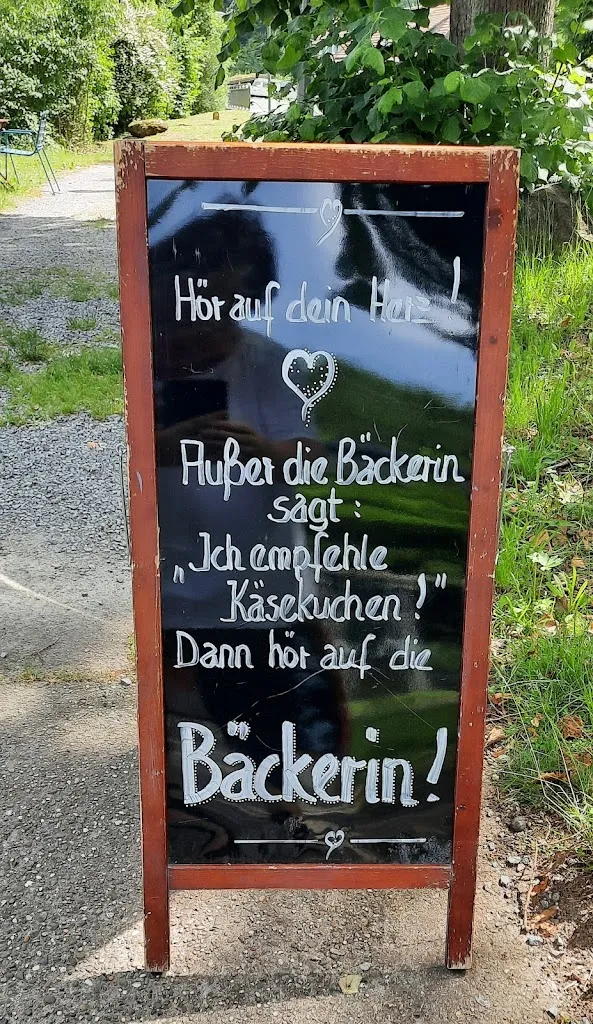 Hör auf dein Herz!
Außer die Bäckerin
sagt:
„Ich empfehle
Käsekuchen!"
Dann hör auf die
Bäckerin!